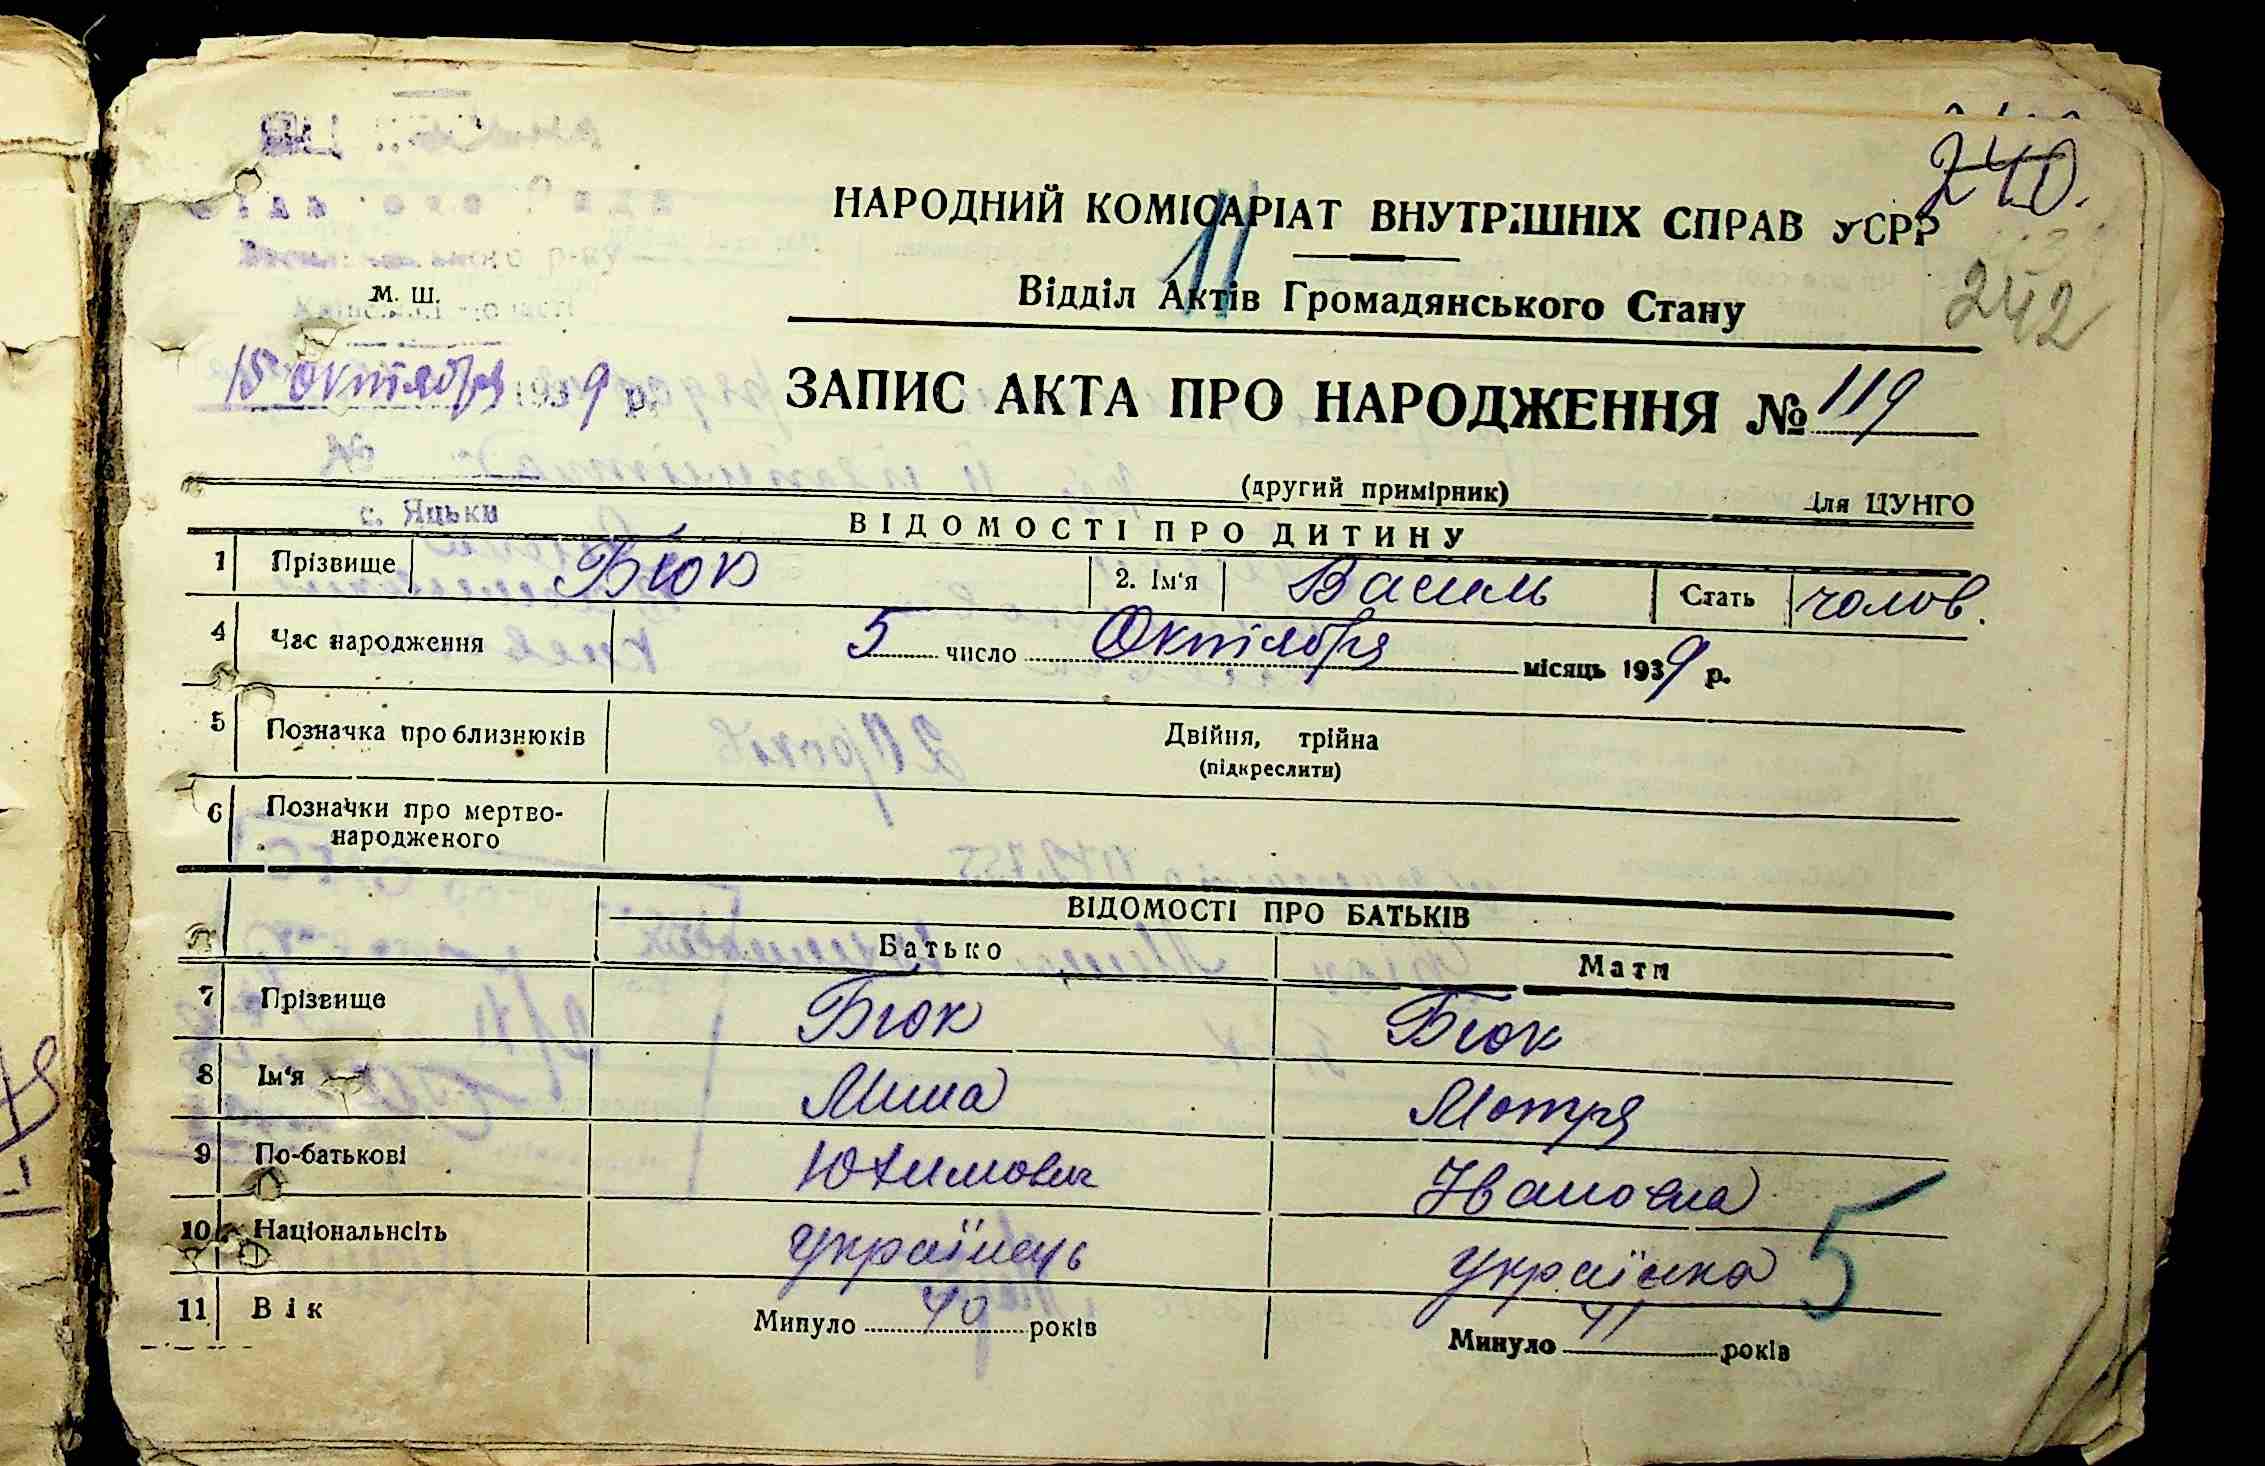 240.
242
НАРОДНИЙ КОМІСАРІАТ ВНУТРІШНІХ СПРАВ УСРР
11
м. ш.
Відділ Актів Громадянського Стану
15 октября 1939 р.
ЗАПИС АКТА ПРО НАРОДЖЕННЯ № 119
№
(другий примірник)
Для ЦУНГО
с. Яцьки
ВІДОМОСТІ ПРО ДИТИНУ
1 Прізвище Бюк 2. Ім'я Василь Стать чолов.
4 Час народження 5 число Октября місяць 1939 р.
5 Позначка про близнюків Двійня, трійна
(підкреслити)
6 Позначки про мертво-
народженого
ВІДОМОСТІ ПРО БАТЬКІВ
Батько Мати
7 Прізвище Бюк Бюк
8 Ім'я Миша Мотря
9 По-батькові Юхимович Івановна
10 Національнсіть Українець Українка
5
11 Вік Минуло 40 років Минуло 41 років